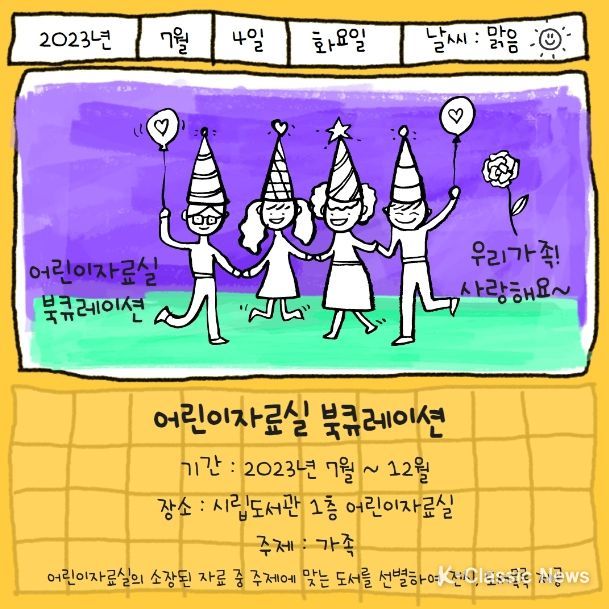 2023년 7월 4일 화요일 날씨 : 맑음
어린이자료실
북큐레이션
우리가족!
사랑해요~
어린이자료실 북큐레이션
기간 : 2023년 7월 ~ 12월
장소 : 시립도서관 1층 어린이자료실
주제 : 가족
어린이자료실의 소장된 자료 중 주제에 맞는 도서를 선별하여
K-Classic News